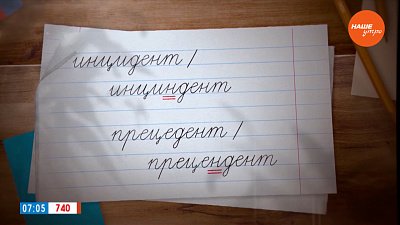 НАШЕ
утро
инцидент /
инциндент
прецедент /
прецендент
07:05 740